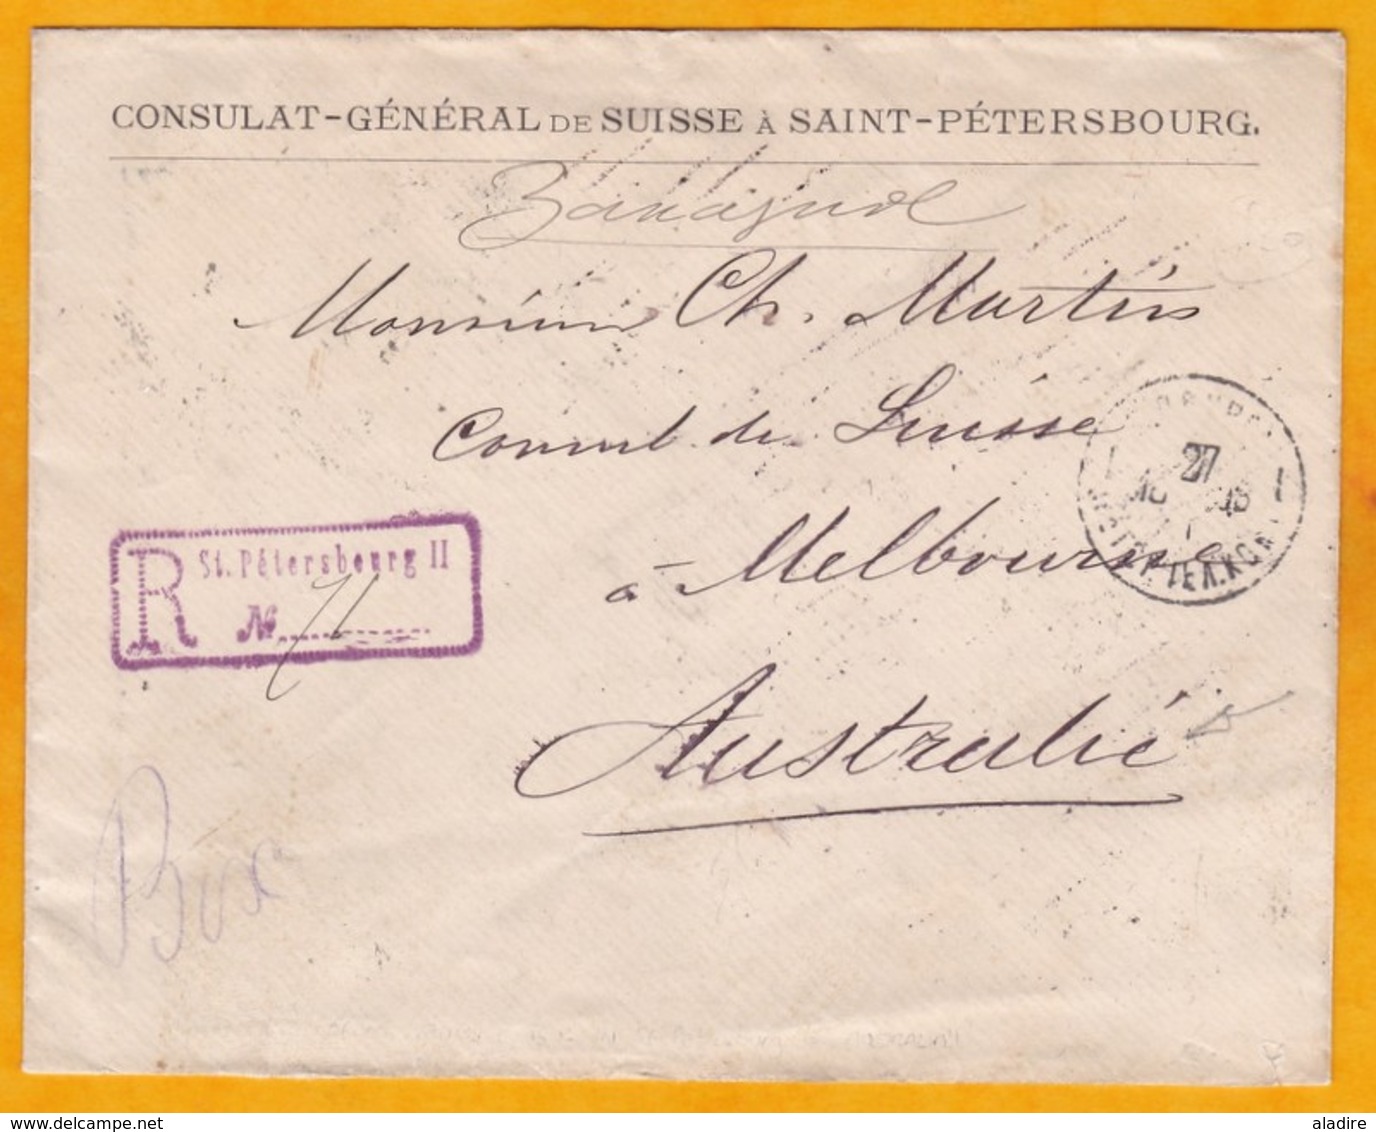 CONSULAT-GÉNÉRAL DE SUISSE À SAINT-PÉTERSBOURG.
Заказное
Monsieur Ch. Martin
Consul de Suisse
à Melbourne
Australie
R St. Pétersbourg II
№ 71
27
Box
delcampe.net
aladire